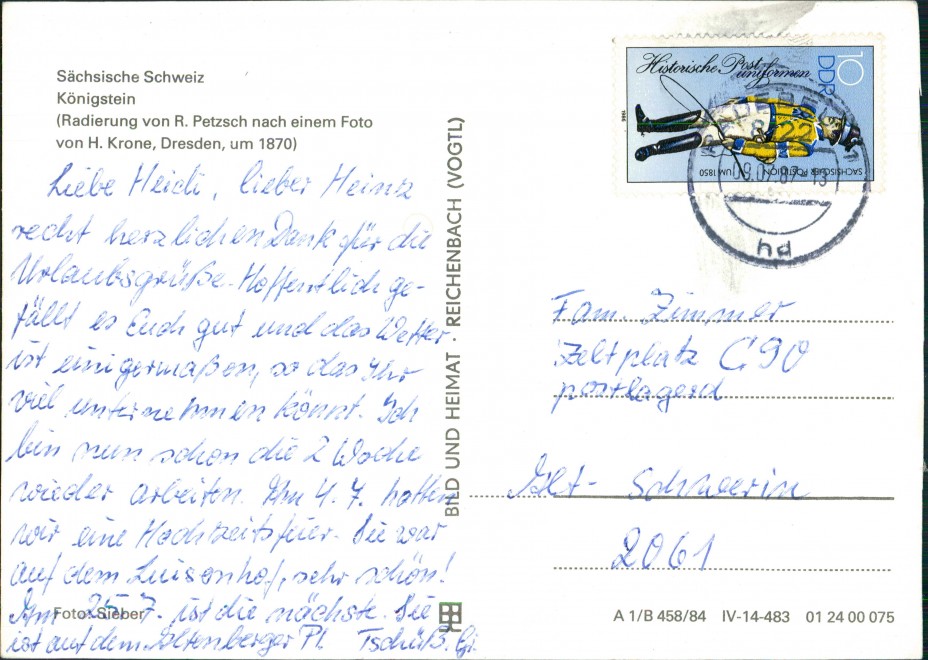 Sächsische Schweiz
Königstein
(Radierung von R. Petzsch nach einem Foto
von H. Krone, Dresden, um 1870)
Liebe Heidi, lieber Heinz
recht herzlichen Dank für die
Urlaubsgrüße. Hoffentlich ge-
fällt es Euch gut und das Wetter
ist einigermaßen, so das Ihr
viel unternehmen könnt. Ich
bin nun schon die 2 Woche
wieder arbeiten. Am 4. 7. hatten
wir eine Hochzeitsfeier. Sie war
auf dem Luisenhof, sehr schön!
Am 25. 7. ist die nächste. Sie
ist auf dem Altenberger Pl. Tschüß.
Foto: Sieber
BILD UND HEIMAT · REICHENBACH (VOGTL)
Historische Post
uniformen
10
DDR
SÄCHSISCHER POSTILLION UM 1850
1986
hd
Fam. Zimmer
Zeltplatz C90
postlagernd
Alt- Schwerin
2061
A 1/B 458/84 IV-14-483 01 24 00 075